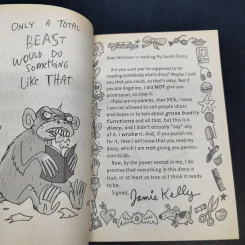 ONLY A TOTAL
BEAST
WOULD DO
SOMETHING
LIKE THAT
Dear Whoever is reading My Dumb Diary,
Are you sure you're supposed to be
reading somebody else's diary? Maybe I told
you that you could, so that's okay. But if
you are Angeline, I did NOT give you
permission, so stop it.
If you are my parents, then YES, I know
I am not allowed to call people idiots
and dopes or talk about gross bodily
functions and all that, but this is a
diary, and I didn't actually "say" any
of it. I wrote it. And, if you punish me
for it, then I will know that you read my
diary, which I am not giving you permis-
sion to do.
Now, by the power vested in me, I do
promise that everything in this diary is
true, or at least as true as I think it needs
to be.
Signed,
Jamie Kelly